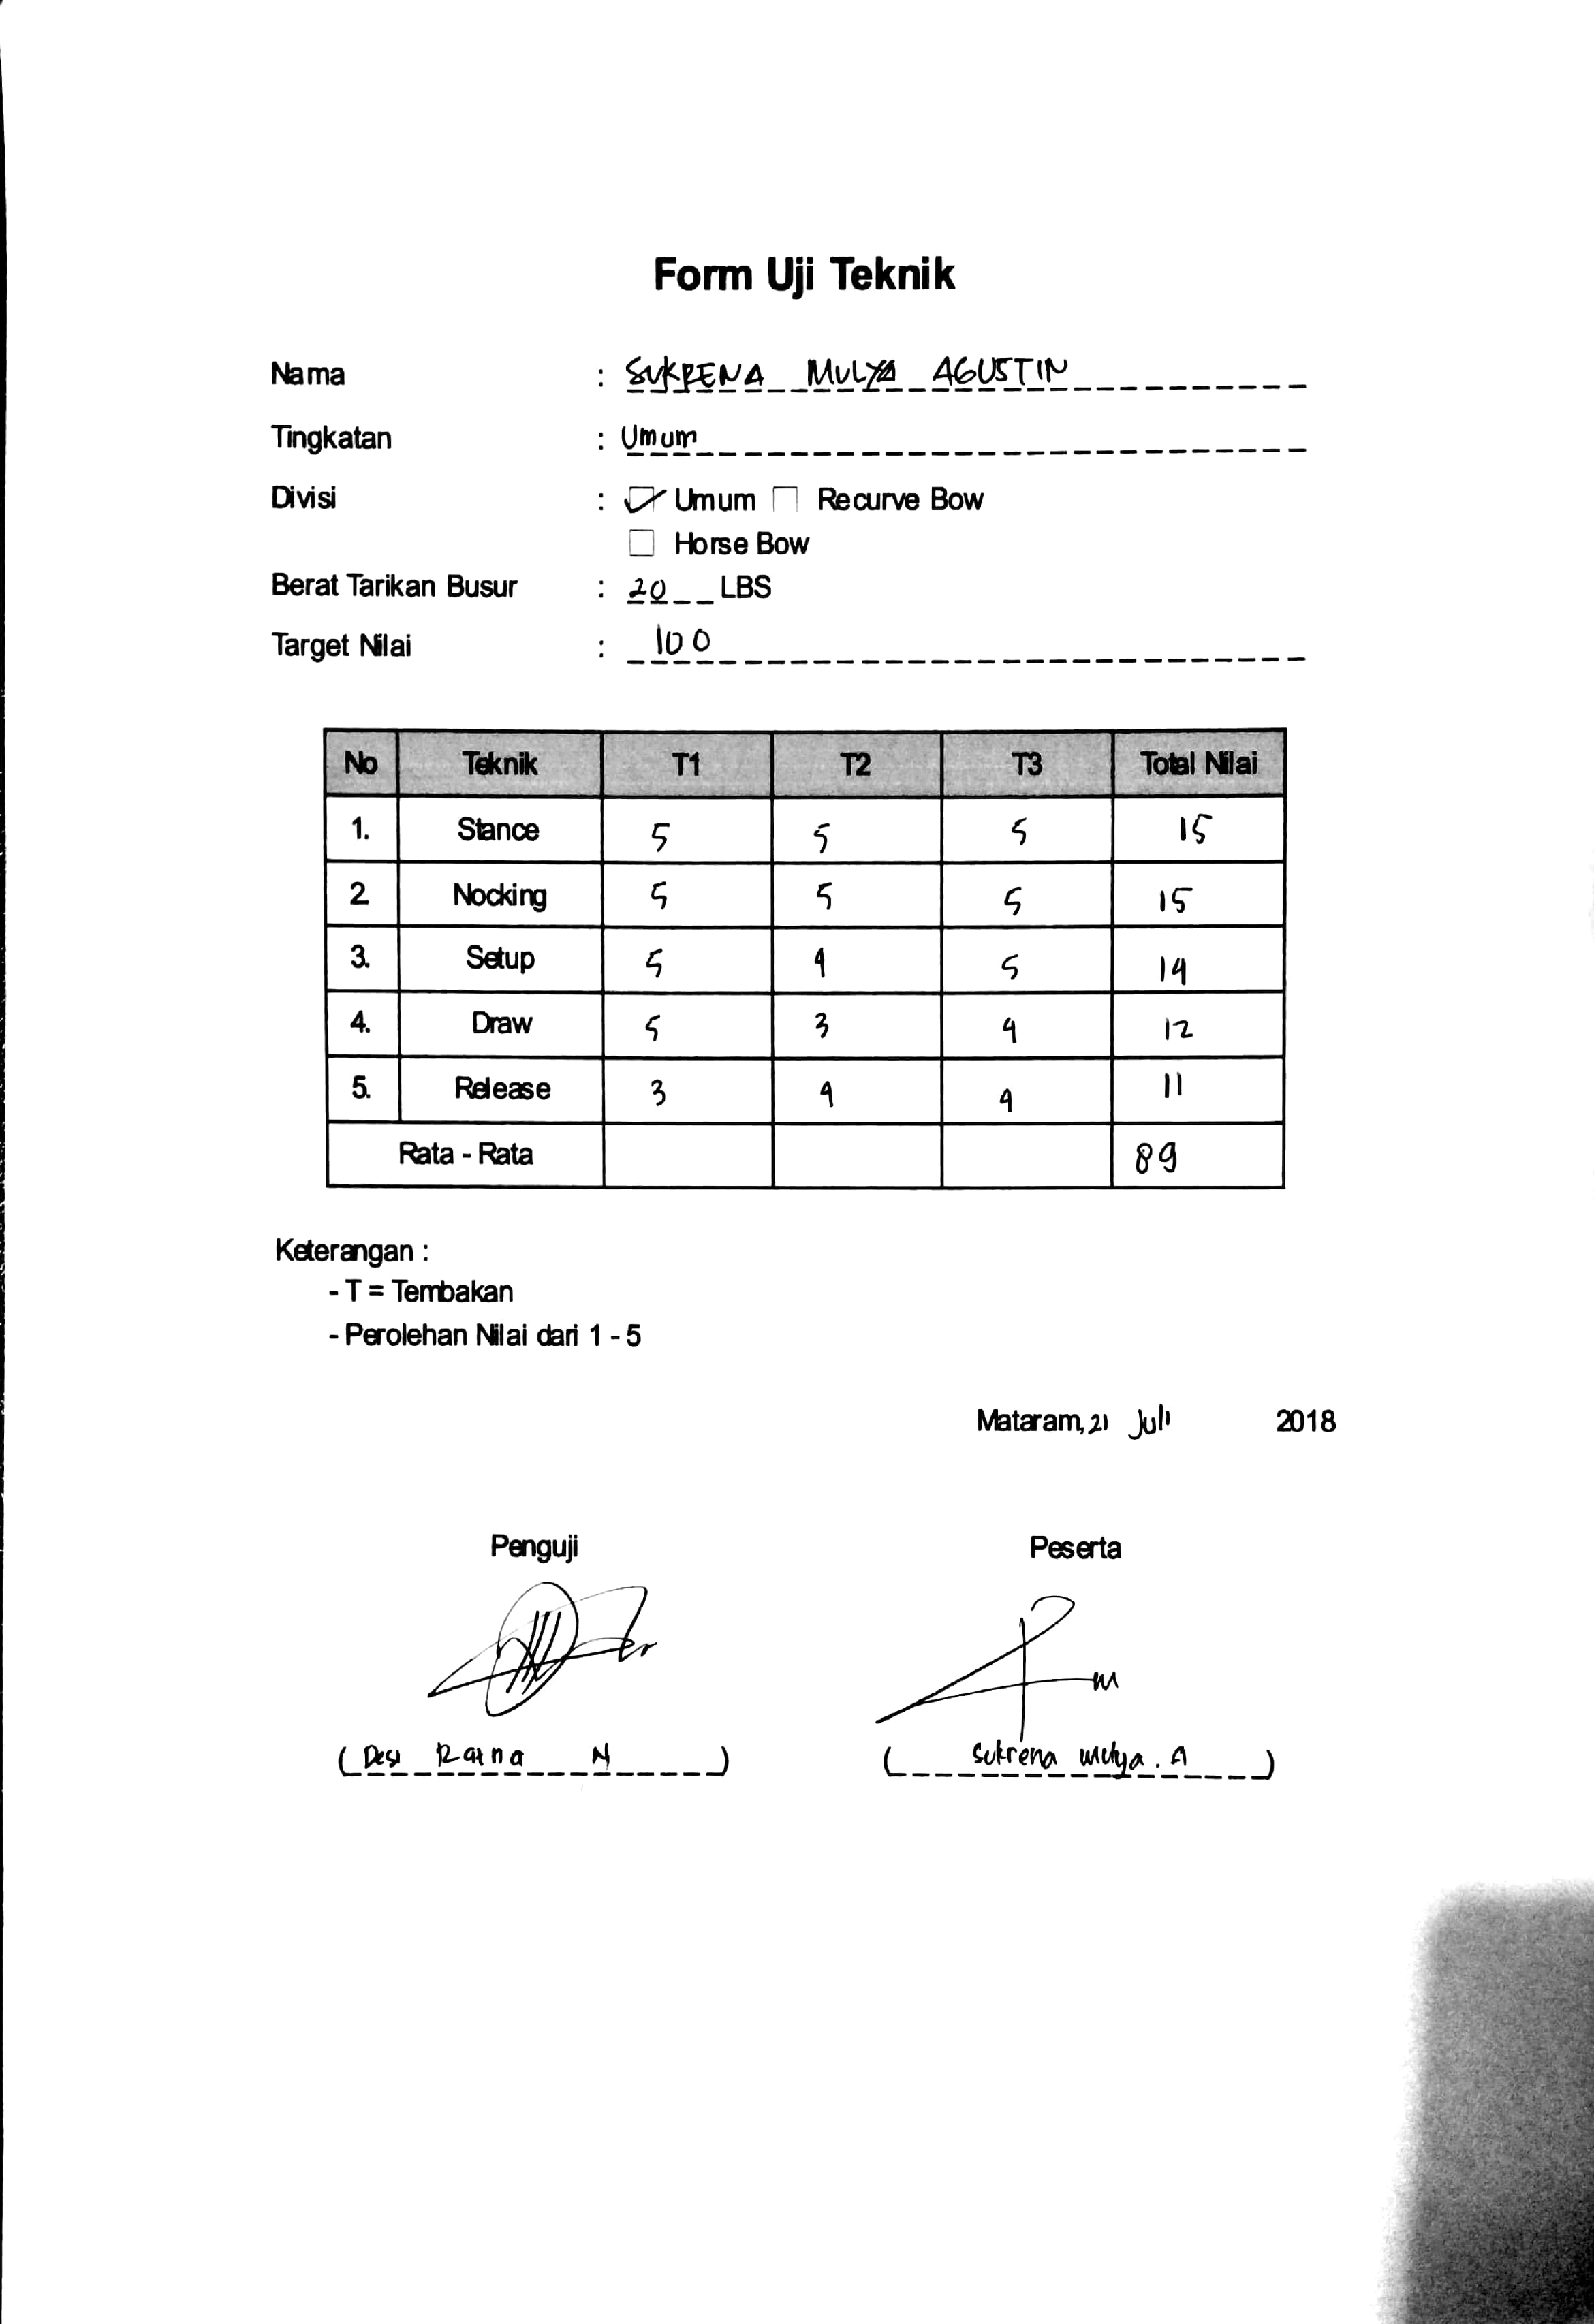 Form Uji Teknik
Nama : SUKRENA MULYA AGUSTIN
Tingkatan : Umum
Divisi : Umum Recurve Bow
Horse Bow
Berat Tarikan Busur : 20 LBS
Target Nilai : 100
No Teknik T1 T2 T3 Total Nilai
1. Stance 5 5 5 15
2. Nocking 5 5 5 15
3. Setup 5 4 5 14
4. Draw 5 3 4 12
5. Release 3 4 4 11
Rata - Rata 89
Keterangan :
- T = Tembakan
- Perolehan Nilai dari 1 - 5
Mataram, 21 Juli 2018
Penguji Peserta
( Desi Ratna N ) ( Sukrena Mulya . A )